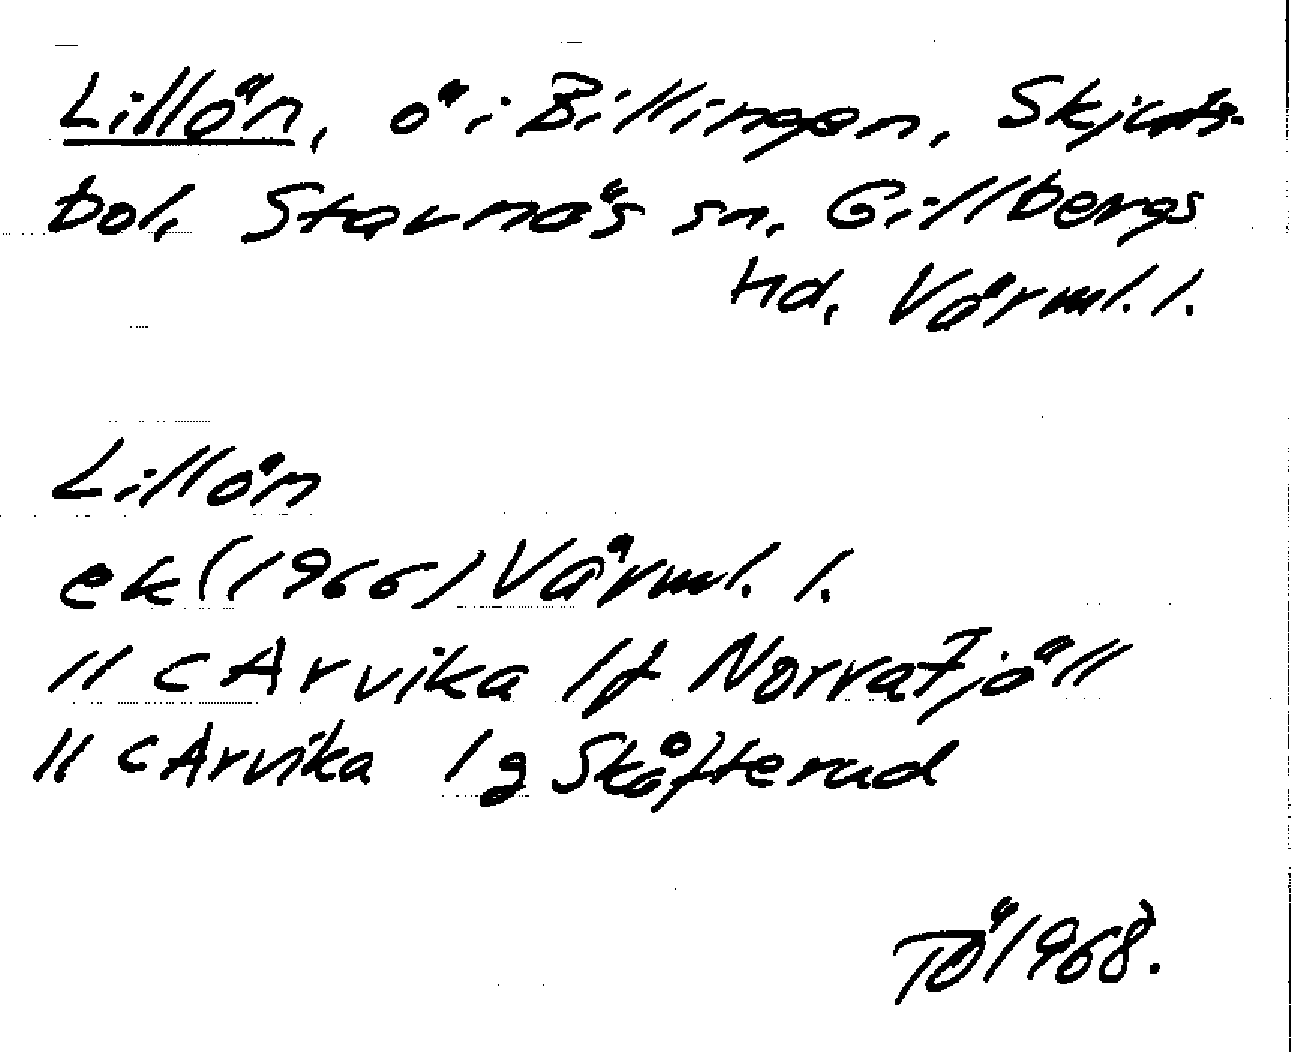 Lillön, ö i Billingen, Skjuts-
bol, Stavnäs sn, Gillbergs
hd, Värml. l.
Lillön
ek (1966) Värml. l.
11 c Arvika 1 f Norra Fjöll
11 c Arvika 1 g Skåfterud
TÖ 1968.